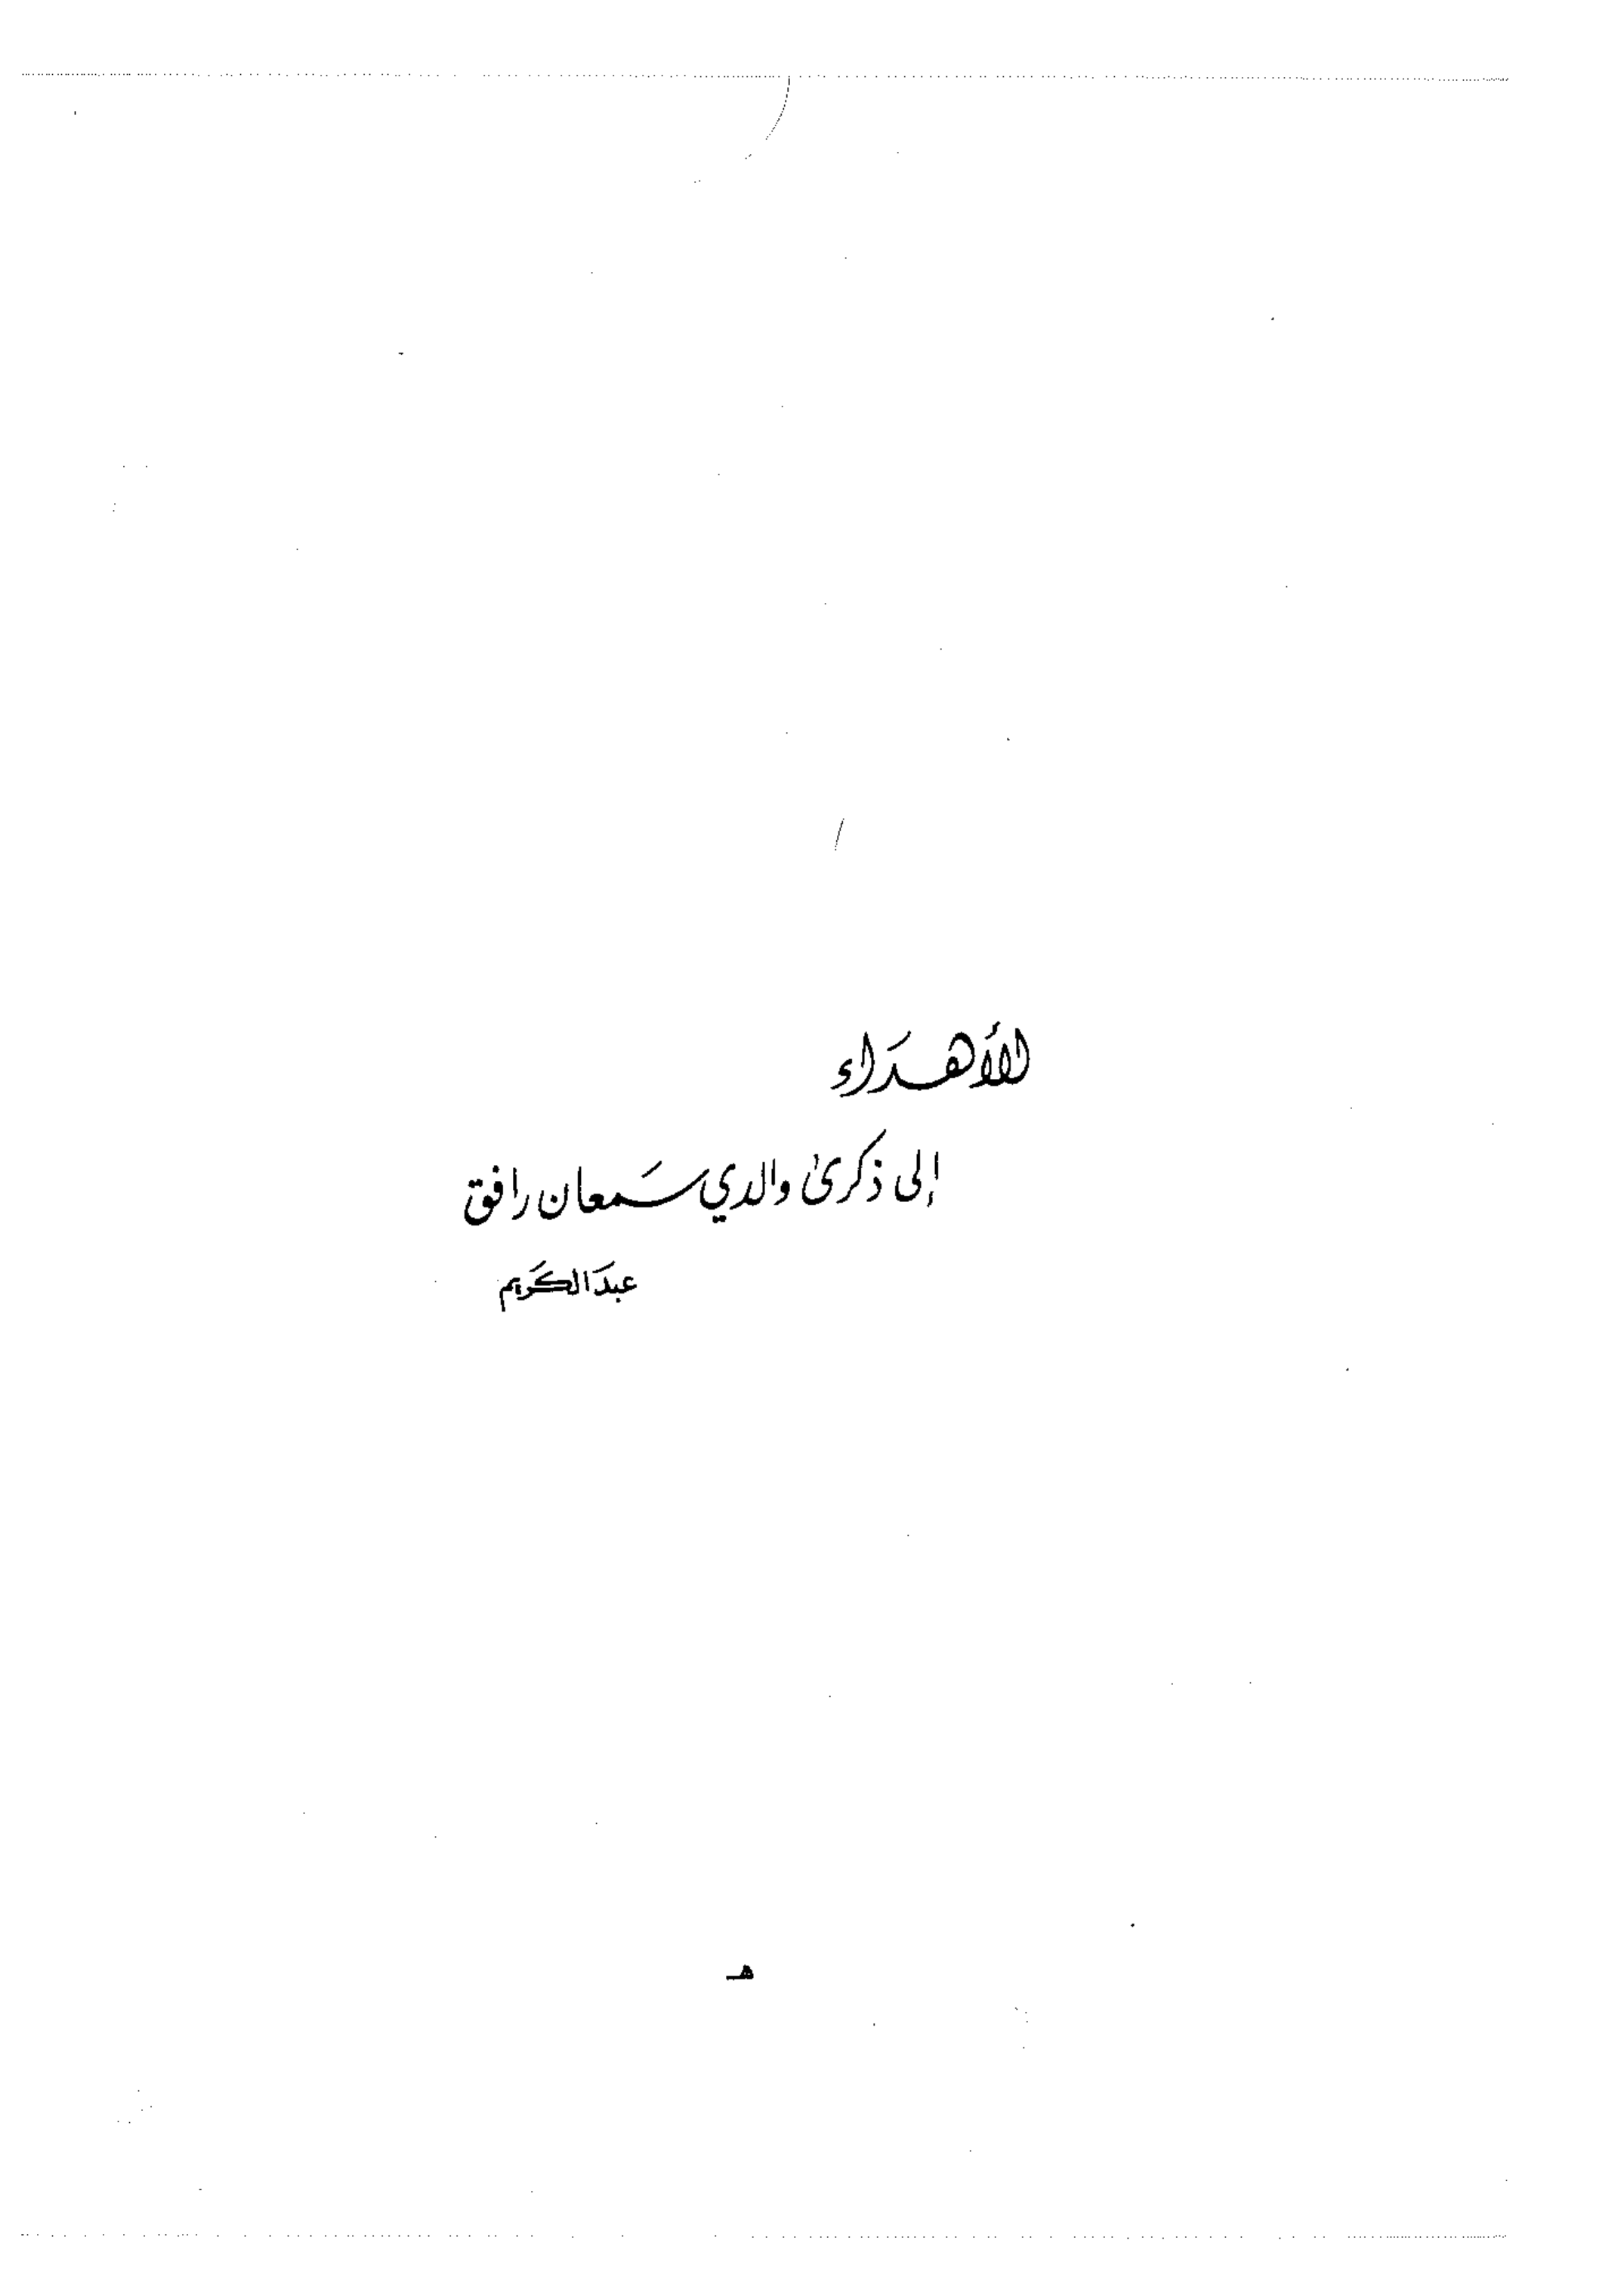 الأهداء
إلى ذكرى والدي سمعان رافق
عبد الكريم
هـ